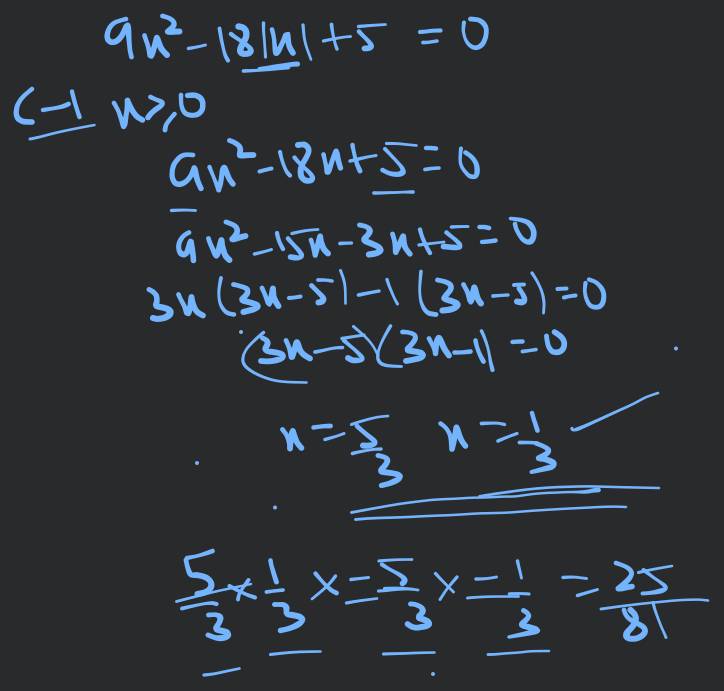 9x² - 18|x| + 5 = 0
C-1 x ≥ 0
9x² - 18x + 5 = 0
9x² - 15x - 3x + 5 = 0
3x (3x - 5) - 1 (3x - 5) = 0
(3x - 5)(3x - 1) = 0
x = 5/3 x = 1/3 ✓
5/3 × 1/3 × -5/3 × -1/3 = 25/81